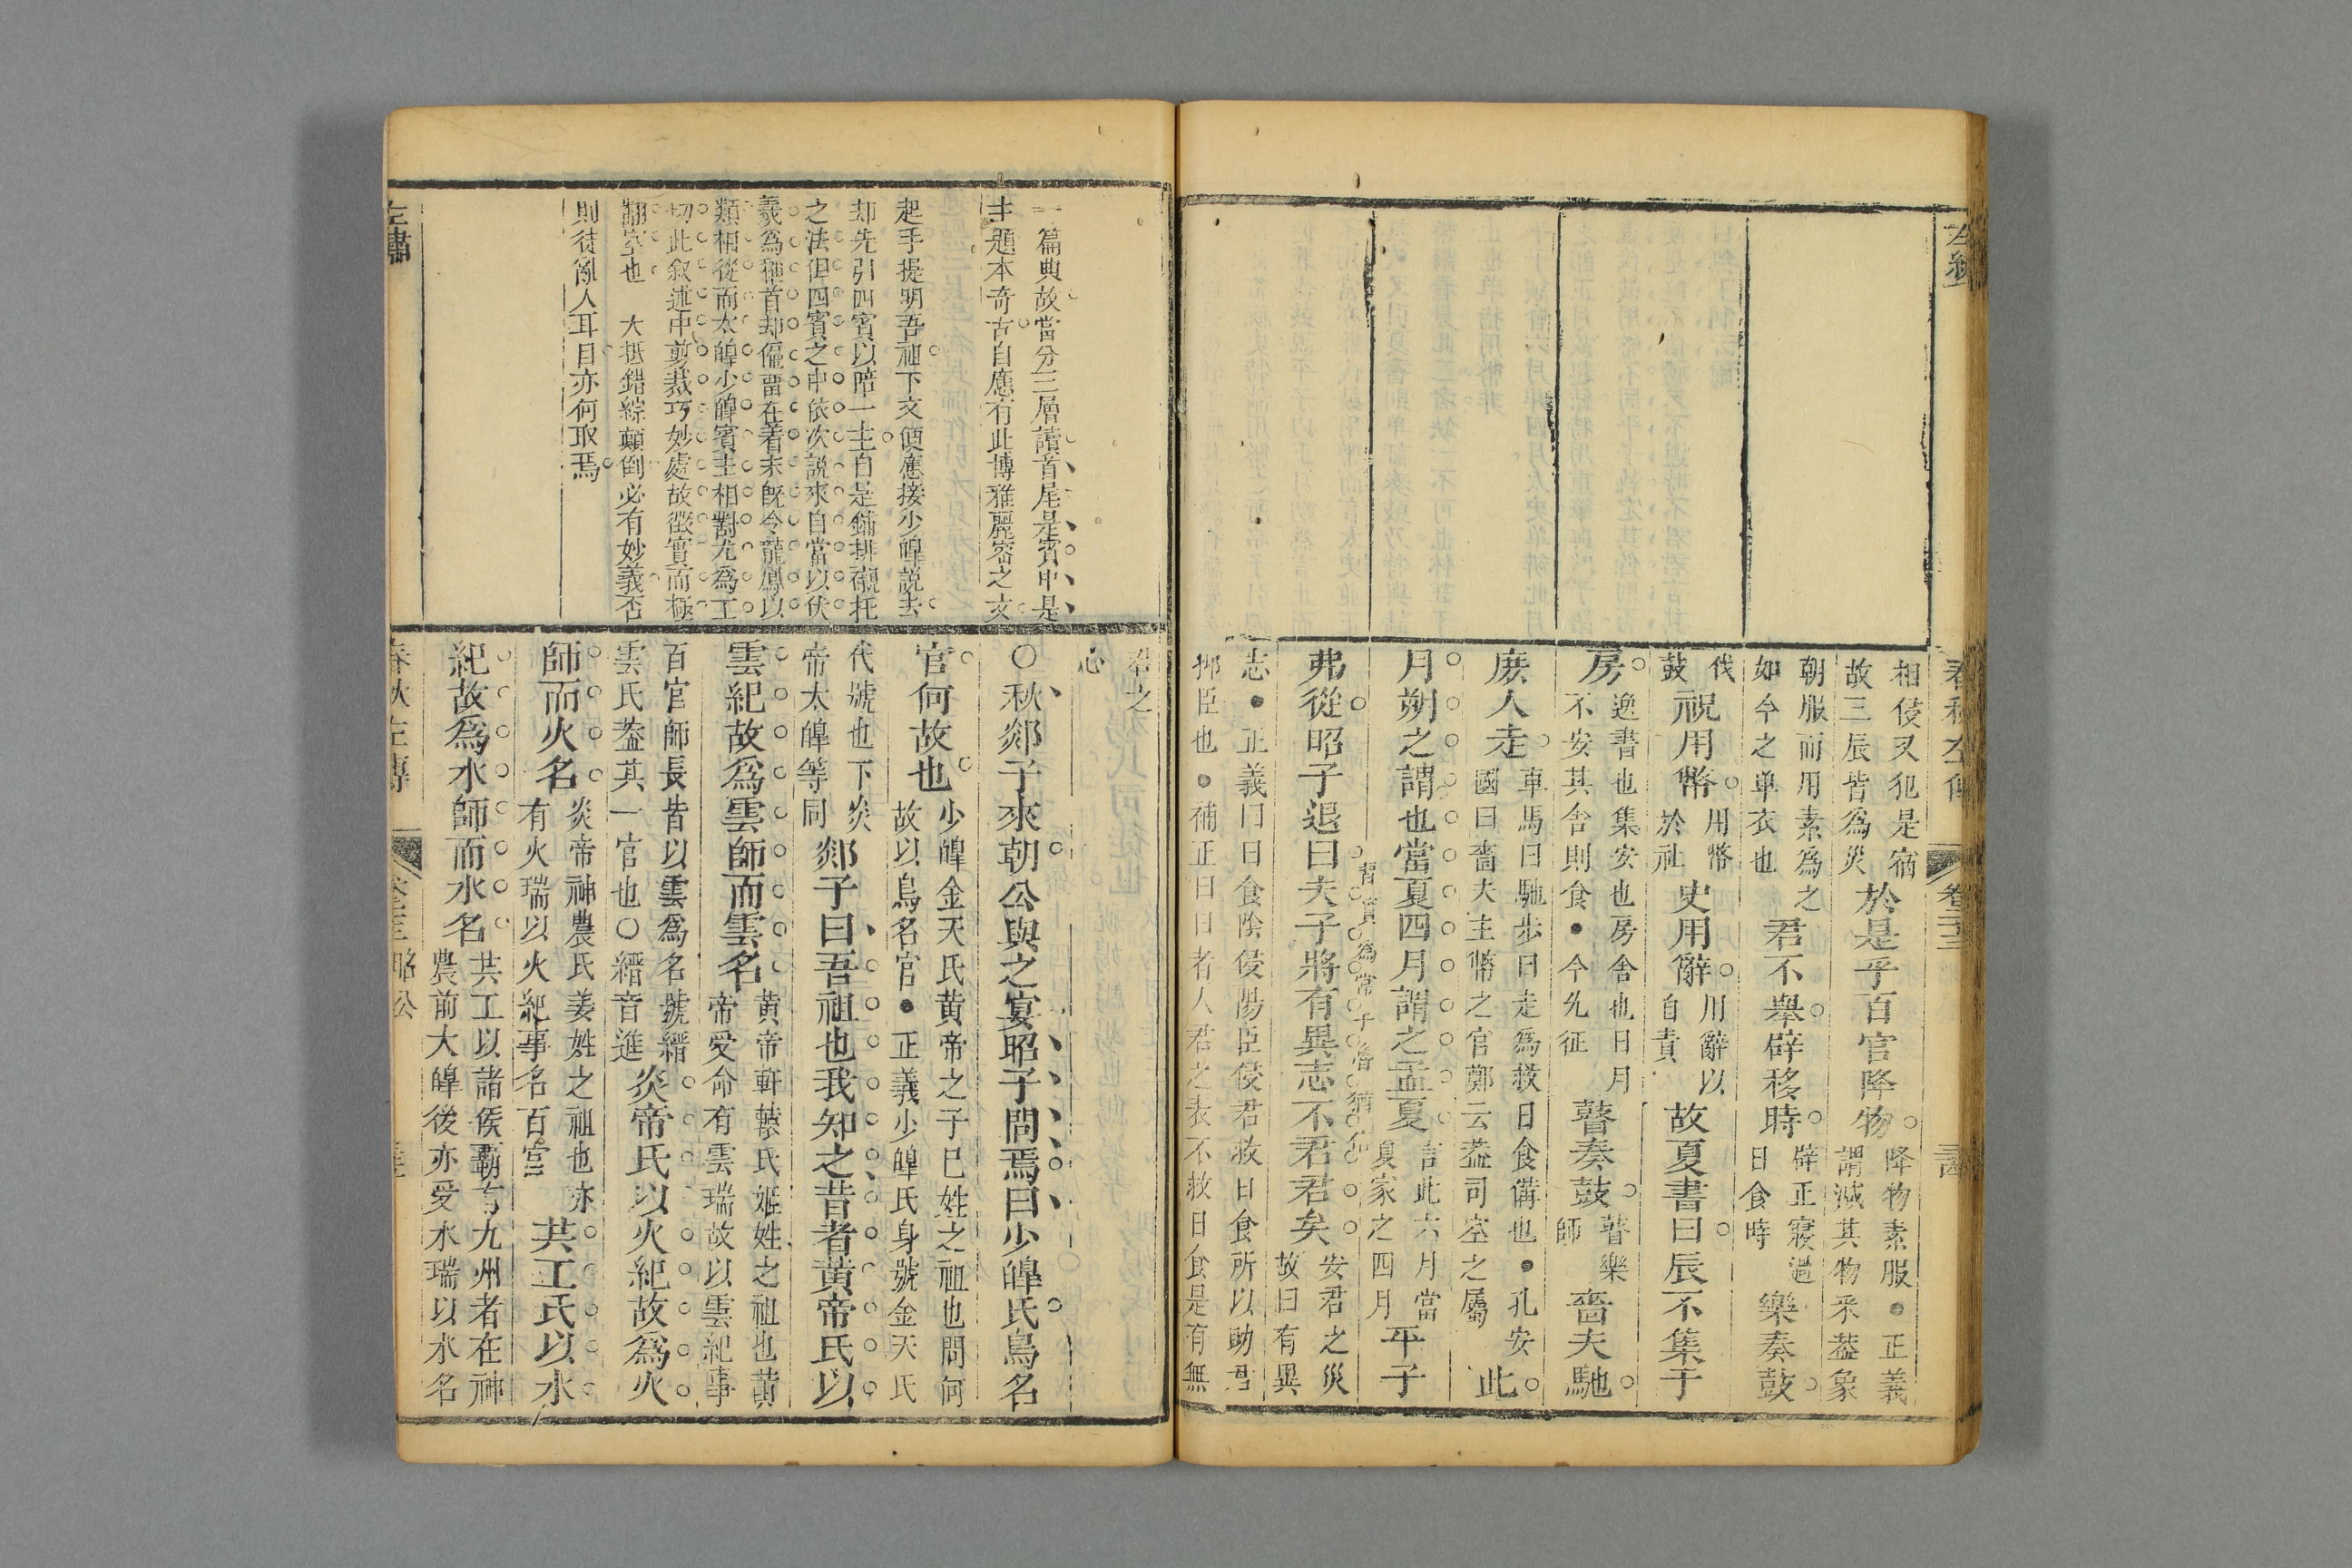 春秋左傳
卷二十三
相侵又犯是宿
故三辰皆為災
於是乎百官降物
降物素服●正義
謂減其物采葢象
朝服而用素為之
如今之單衣也
君不舉辟移時
辟正寢過
日食時
樂奏鼓
伐
鼓
祝用幣
用幣
於社
史用辭
用辭以
自責
故夏書曰辰不集于
房
逸書也集安也房舍也日月
不安其舍則食●今㣧征
瞽奏鼓
瞽樂
師
嗇夫馳
庶人走
車馬曰馳步曰走為救日食備也●孔安
國曰嗇夫主幣之官鄭云葢司空之屬
此
月朔之謂也當夏四月謂之孟夏
言此六月當
夏家之四月
平子
弗從昭子退曰夫子將有異志不君君矣
安君之災
故曰有異
志●正義曰日食陰侵陽臣侵君救日食所以助君
抑臣也●補正曰日者人君之表不救日食是有無
君之
心
一篇典故當分三層讀首尾是賓中是
主題本奇古自應有此博雅麗密之文
起手提明吾祖下文便應接少皥說去
却先引四賓以陪一主自是鋪排襯托
之法但四賓之中依次說來自當以伏
羲為稱首却偏畱在著末既令龍鳳以
類相從而太皥少皥賓主相對尤為工
切此敘述中剪裁巧妙處故徵實而極
翻空也　大抵錯綜顛倒必有妙義否
則徒亂人耳目亦何取焉
○秋郯子來朝公與之宴昭子問焉曰少皥氏鳥名
官何故也
少皥金天氏黃帝之子巳姓之祖也問何
故以鳥名官●正義少皥氏身號金天氏
代號也下炎
帝太皥等同
郯子曰吾祖也我知之昔者黃帝氏以
雲紀故為雲師而雲名
黃帝軒轅氏姬姓之祖也黃
帝受命有雲瑞故以雲紀事
百官師長皆以雲為名號縉
雲氏葢其一官也○縉音進
炎帝氏以火紀故為火
師而火名
炎帝神農氏姜姓之祖也亦
有火瑞以火紀事名百官
共工氏以水
紀故為水師而水名
共工以諸侯霸有九州者在神
農前大皥後亦受水瑞以水名
左繡
春秋左傳
昭公